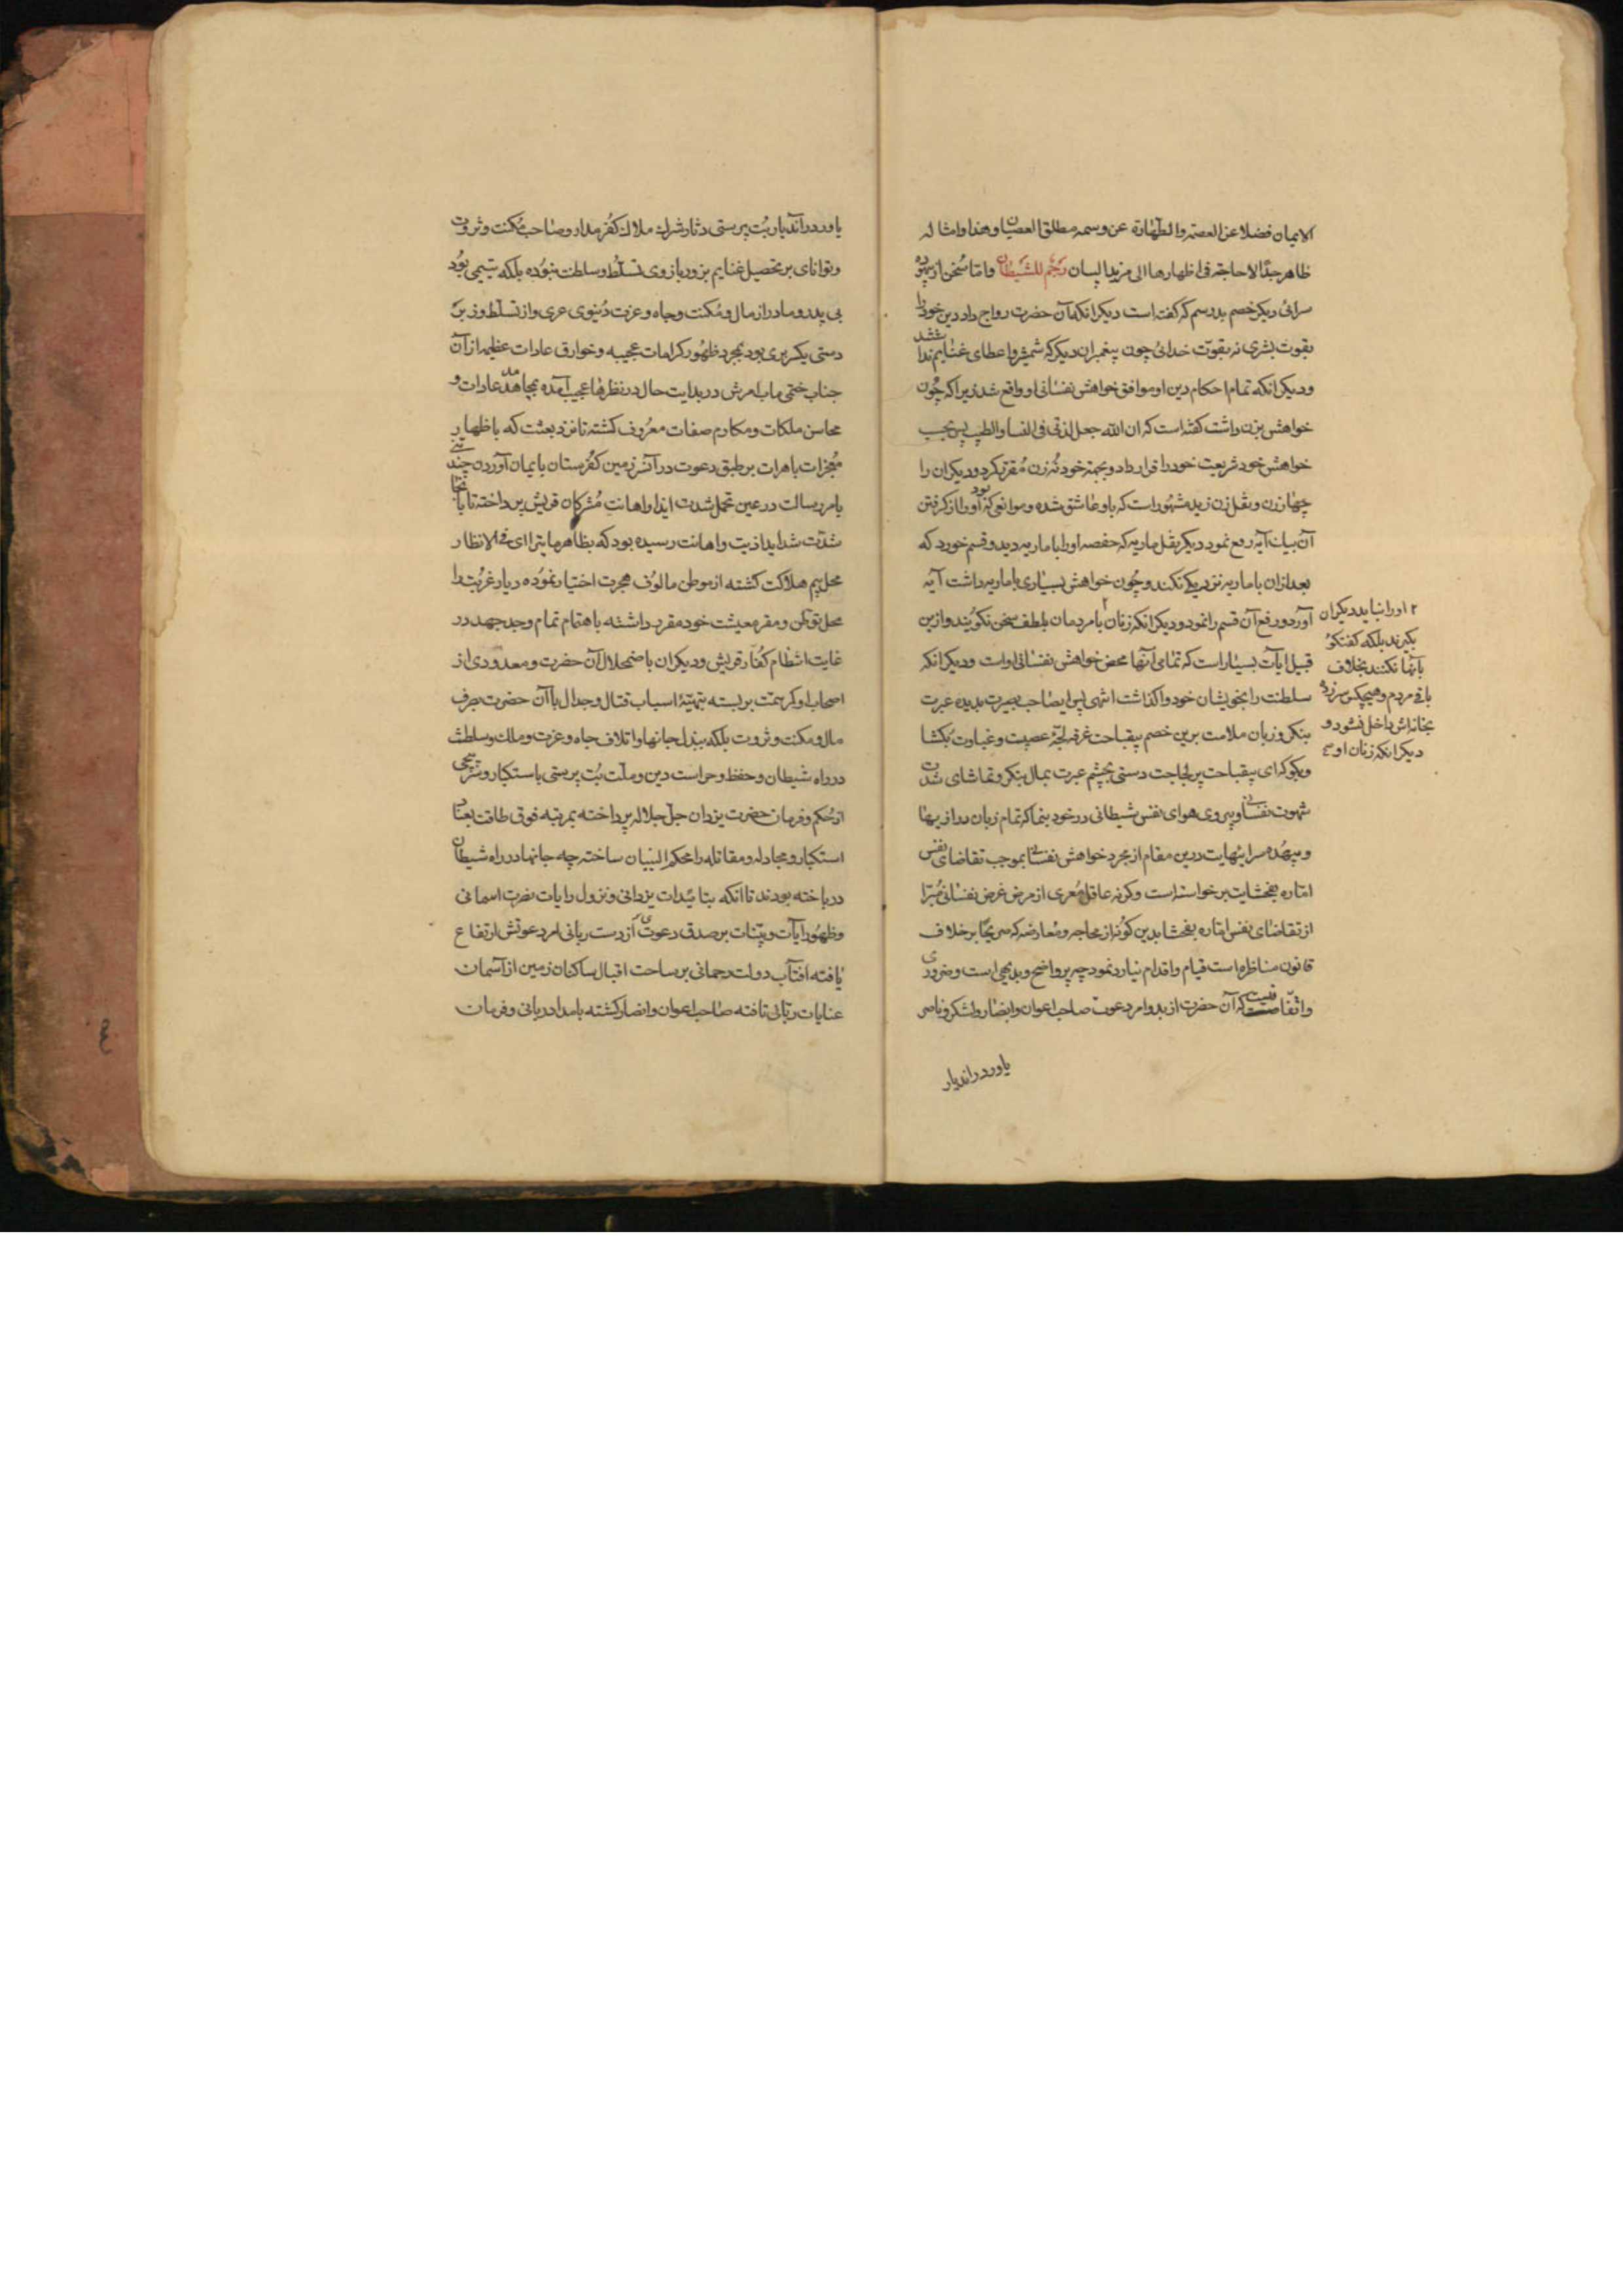 الایمان فضلا عن العصمة والطهارة عن وسمه مطلق العصیان وهذا وامثاله
ظاهر جدا لا حاجة فی اظهارها الی مزید البیان رجم للشیطان واما سخن از بیهوده
سرائی دیکر خصم بد رسم که کفته است دیکر انکه آن حضرت رواج داد دین خود را
بقوت بشری نه بقوت خدائی چون پیغمبران دیکر که شمشیر و اعطای غنایم نداشتند
ودیکر انکه تمام احکام دین او موافق خواهش نفسانی او واقع شد زیرا که چون
خواهش بزن داشت کفته است که ان الله جعل لذتی فی النسا والطیب پس بحسب
خواهش خود شریعت خود را قرار داد و بجهة خود نه زن مقرر کرد و دیکران را
چهار زن و نقل زن زید مشهور است که باو عاشق شده و موانعی که بود او را از کرفتن
آن بیک آیه رفع نمود دیکر نقل ماریه که حفصه او را با ماریه دید و قسم خورد که
بعد ازان با ماریه نزدیکی نکند و چون خواهش بسیاری با ماریه داشت آیه
آورد و رفع آن قسم را نمود و دیکر انکه زنان ۲ با مردمان بلطف سخن نکویند و ازین
قبیل ایات بسیار است که تمامی آنها محض خواهش نفسانی او است ودیکر انکه
سلطنت را بخویشان خود واکذاشت انتهی پس ایصاحب بصیرت بدیده عبرت
بنکر و زبان ملامت برین خصم پیقباحت غرقه لجة عصبیت و غباوت بکشا
وبکو که ای پیقباحت پر لجاجت دستی بچشم عبرت بمال بنکر و تماشای شدت
شهوت نفسانی و پیروی هوای نفس شیطانی در خود بنما که تمام زبان درازیها
و بیهده سرائیهایت درین مقام از مجرد خواهش نفسانی بموجب تقاضای نفس
اماره بفحشایت برخواسته است وکرنه عاقل معری از مرض غرض نفسانی مبرا
از تقاضای نفس اماره بفحشا بدین کونه از محاجه و معارضه که صریحا بر خلاف
قانون مناظره است قیام واقدام نیارد نمود چه پر واضح و بدیهی است و ضروری
واتفاقیست که آن حضرت از بدو امر دعوت صاحب اعوان و انصار و لشکر و ناصر
یاور در اندیار
۲ اورا نباید دیکران
بکیرند بلکه کفتکو
بآنها نکنند بخلاف
باقی مردم و هیچکس سرزده
بخانه اش داخل نشود و
دیکر انکه زنان او
یاور در آندیار بت پرستی دثار شرک ملاک کفر مدار و صاحب مکنت و ثروت
وتوانای بر تحصیل غنایم بزور بازوی تسلط وسلطنت نبوده بلکه یتیمی بود
بی پدر و مادر از مال و مکنت و جاه و عزت دنیوی عری و از تسلط و زبر
دستی یکسر بری بود بمجرد ظهور کرامات عجیبه و خوارق عادات عظیمه از آن
جناب ختمی ماب امرش در بدایت حال در نظرها عجیب آمده بمحامد عادات و
محاسن ملکات و مکارم صفات معروف کشته تا نزد بعثت که باظهار
معجزات باهرات بر طبق دعوت در آن سرزمین کفرستان بایمان آوردن چند تنی
بامر رسالت در عین تحمل شدت ایذا و اهانت مشرکان قریش پرداخته تا بانتها
شدت شداید اذیت و اهانت رسیده بود که بظاهر ما یترا ای فی الانظار
محل بیم هلاکت کشته از موطن مالوف هجرت اختیار نموده دیار غربت را
محل توطن و مقر معیشت خود مقرر داشته باهتمام تمام و جد جهد در
غایت انتظام کفار قریش و دیکران باضمحلال آن حضرت و معدودی از
اصحاب او کر همت بر بسته بتهیة اسباب قتال و جدال با آن حضرت بصرف
مال و مکنت و ثروت بلکه ببذل جانها و اتلاف جاه و عزت و ملک و سلطنت
در راه شیطان و حفظ و حراست دین و ملت بت پرستی باستکبار و سرپیچی
از حکم و فرمان حضرت یزدان جل جلاله پرداخته بمرتبه فوق طاقت بعناد
استکبار و مجادله و مقاتله را محکم البنیان ساخته چه جانها در راه شیطان
در باخته بودند تا انکه بتائیدات یزدانی و نزول رایات نصرت اسمانی
وظهور آیات و بینات بر صدق دعوی آن دست ربانی امر دعوتش ارتفاع
یافته افتاب دولت رحمانی بر ساحت اقبال ساکنان زمین از آسمان
عنایات ربانی تافته صاحب اعوان و انصار کشته بامداد ربانی و فرمان